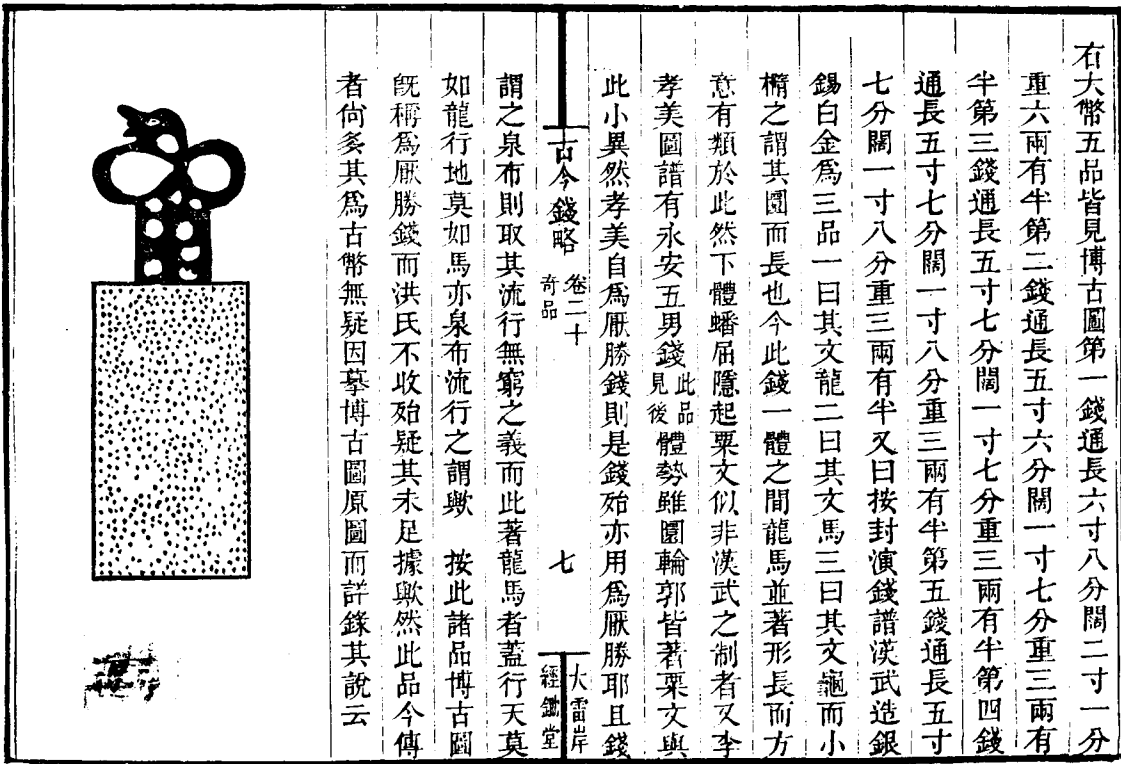 右大幣五品皆見博古圖第一錢通長六寸八分闊二寸一分
重六兩有半第二錢通長五寸六分闊一寸七分重三兩有
半第三錢通長五寸七分闊一寸七分重三兩有半第四錢
通長五寸七分闊一寸八分重三兩有半第五錢通長五寸
七分闊一寸八分重三兩有半又曰按封演錢譜漢武造銀
錫白金爲三品一曰其文龍二曰其文馬三曰其文龜而小
橢之謂其圜而長也今此錢一體之間龍馬並著形長而方
意有類於此然下體蟠屈隱起粟文似非漢武之制者又李
孝美圖譜有永安五男錢此品見後體勢雖圜輪郭皆著粟文與
此小異然孝美自爲厭勝錢則是錢殆亦用爲厭勝耶且錢
古今錢略
卷二十
奇品
七
大雷岸
經鋤堂
謂之泉布則取其流行無窮之義而此著龍馬者蓋行天莫
如龍行地莫如馬亦泉布流行之謂歟 按此諸品博古圖
旣稱爲厭勝錢而洪氏不收殆疑其未足據歟然此品今傳
者尙多其爲古幣無疑因摹博古圖原圖而詳錄其說云